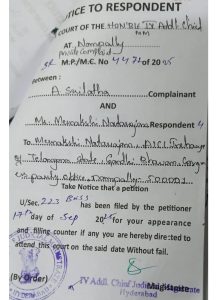 NOTICE TO RESPONDENT
COURT OF THE HON'BLE IV Addl. Chief
MM
AT Nampally
private complaint
SR M.P./M.C. No 4471 of 2025
Between:
A Srilatha
Complainant
AND
Ms. Meenakshi Natarajan Respondent 4
To Meenakshi Natarajan, AICC Incharge
of Telangana State, Gandhi Bhawan,
Nampally 500001
Take Notice that a petition
U/Sec. 223 BNSS has been filed by the petitioner
17th day of Sep 2025 for your appearance
and filling counter if any you are hereby directed to
attend this court on the said date Without fail.
(By Order)
Magistrate
IV Addl. Chief Judicial Magistrate
Hyderabad